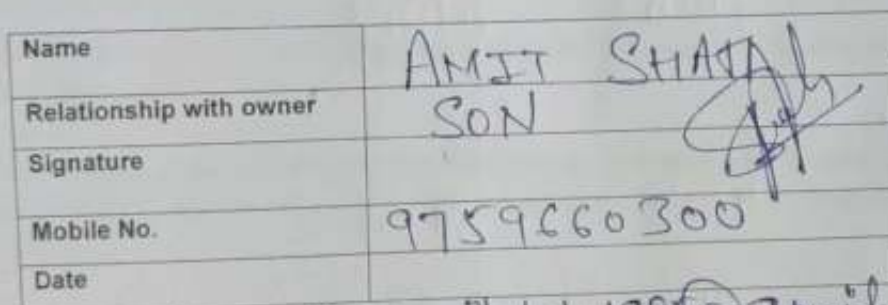 Name AMIT
Relationship with owner SON
Signature
Mobile No. 9759660300
Date